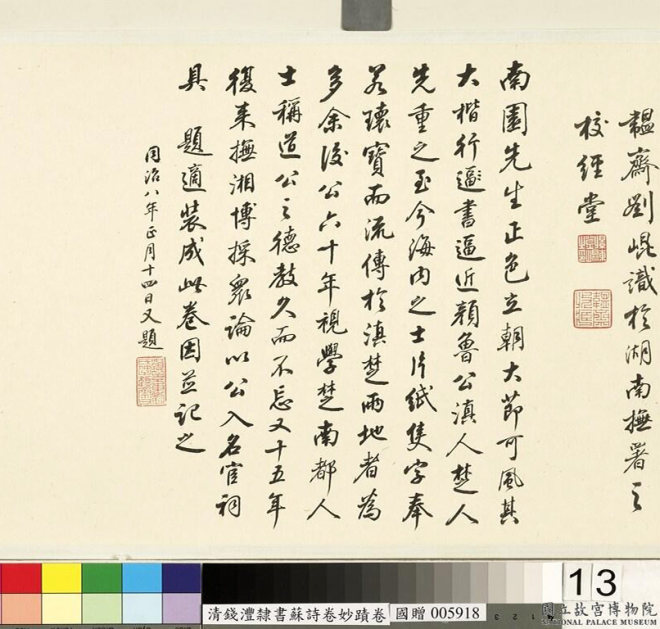 韞齋劉崐識於湖南撫署之
校經堂
南園先生正色立朝大節可風其
大楷行𨗿書逼近顏魯公滇人楚人
先重之至今海內之士片紙隻字奉
若瓌寶而流傳於滇楚兩地者為
多余後公六十年視學楚南都人
士稱道公之德教久而不忘又十五年
復來撫湘博採眾論以公入名宦祠
具題適裝成此卷因並記之
同治八年正月十四日又題
清錢灃隸書蘇詩卷妙蹟卷
國贈 005918
13
國立故宮博物院
NATIONAL PALACE MUSEUM